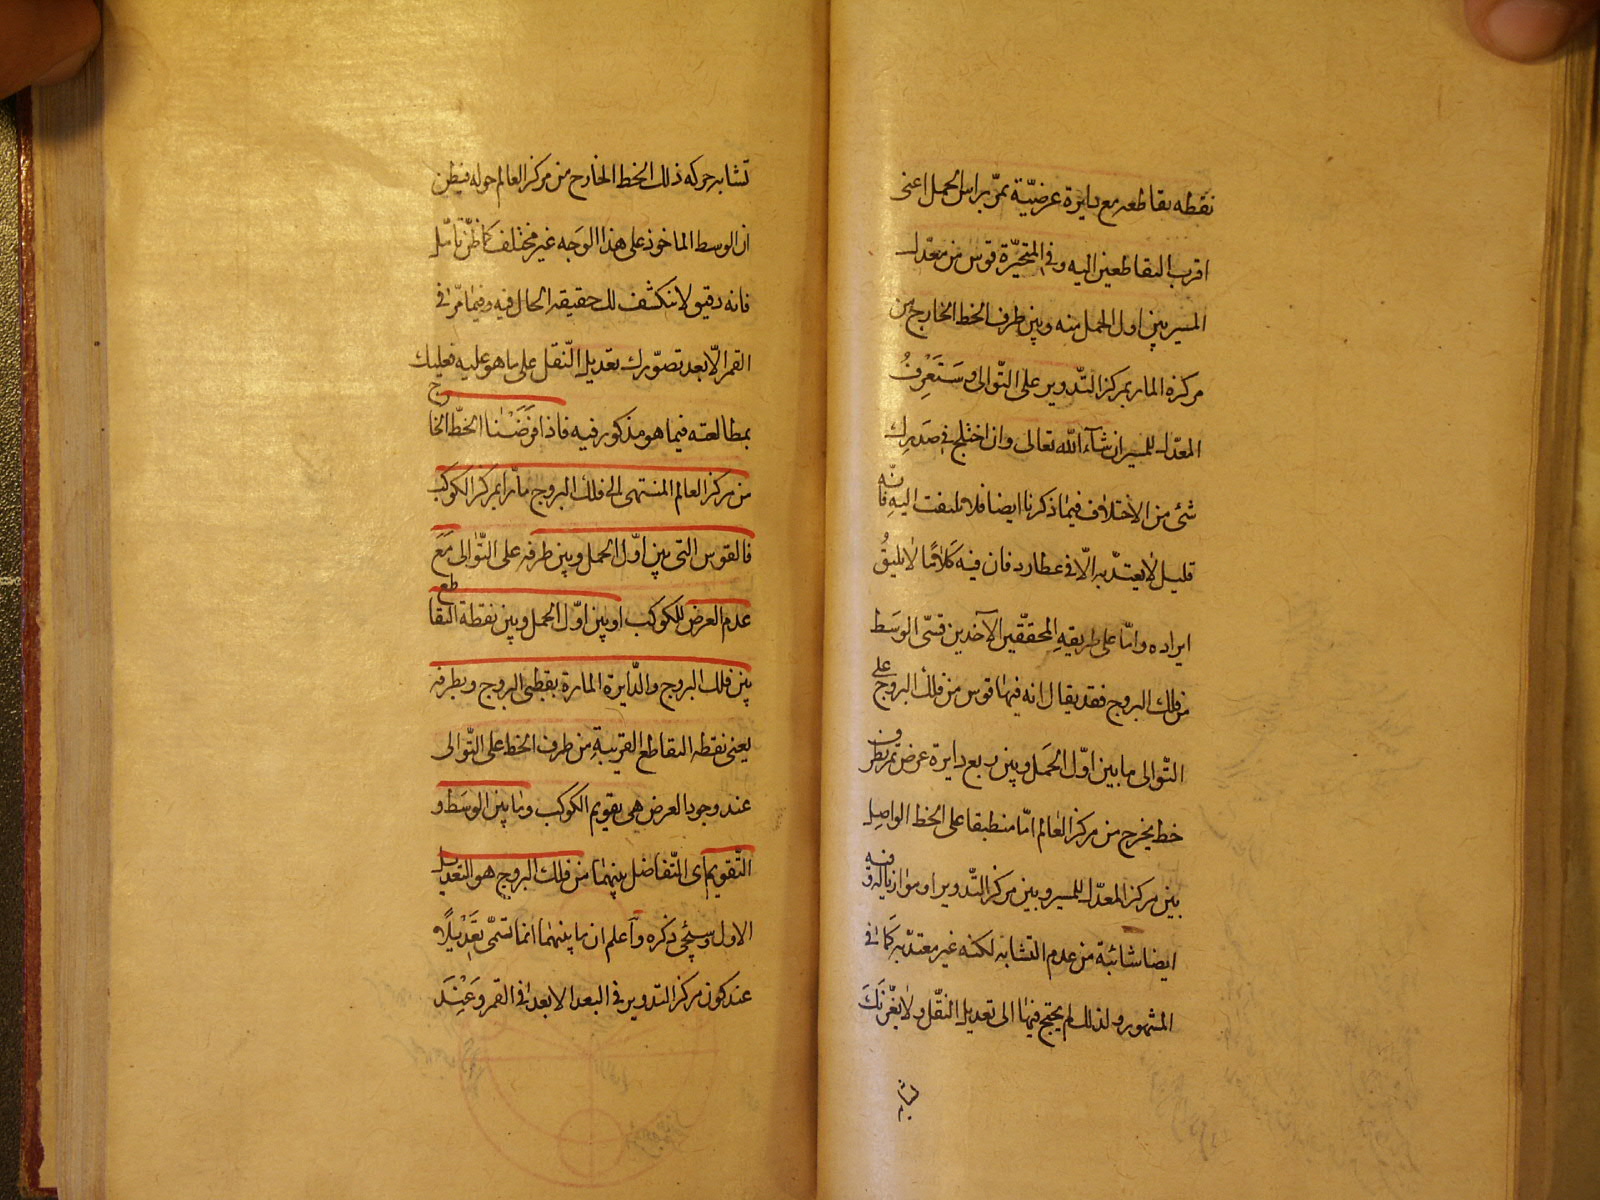 نقطه تقاطعه مع دايرة عرضيّة تمرّ براس الحمل اعنى
اقرب التقاطعين اليه وفى المتحيّرة قوس من معدّل
المسير بين اول الحمل منه وبين طرف الخط الخارج من
مركزه المار بمركز التّدوير على التّوالى وسَتَعْرِفُ
المعدّل للمسير ان شاء اللّه تعالى وان اختلج فى صَدرِك
شئ من الاختلاف فيما ذكرنا ايضا فلا تلتفت اليهِ فانّه
قليل لا يعتدّ به الّا فى عطارد فان فيه كَلامًا لا يليقُ
ايراده وامّا على طريقهِ المحقّقين الآخذين قسّى الوسَط
من فلك البروج فقد يقال انه فيها قوس من فلك البروج على
التّوالى ما بين اوّل الحَمل وبين ربع دايرة عرض تمر بطرف
خط يخرج من مركز العالم امّا منطبقا على الخط الواصِل
بين مركز المعدّل للمسير وبين مركز التّدوير او موازيا له وفيه
ايضا شائبة من عدم التشابه لكنه غير معتدّ به كما فى
المشهور ولذلك لم يحتج فيها الى تعديل النّقل ولا يغّرنّكَ
تشابه
تشابه حركه ذلك الخط الخارج من مركز العالم حوله فيظن
ان الوسط الماخوذ على هذا الوَجه غير مختلف كما ظُنّ تامّل
فانه دقيق لا تنكشف لك حقيقه الحال فيه وفيما مرّ فى
القمر الّا بعد تصوّرك تعديل النّقل على ما هو عليه فعليك
بمطالعته فيما هو مذكور فيه فاذا فرَضْنا الخطّ الخارج
من مركز العالم المنتهى الى فلك البروج مارّا بمركز الكوكب
فالقوس التى بين اوّل الحمل وبين طرفه على التّوالى مَعَ
عدم العرض للكوكب او بين اوّل الحمل وبين نقطة التقاطع
بين فلك البروج والدّايرة المارة بقطبى البروج وبطرفه
يعنى نقطه التقاطع القريبةِ من طرف الخط على التّوالى
عند وجود العرض هى تقويم الكوكب وما بين الوسَط و
التّقويم اى التّفاضل بينهما من فلك البروج هو التعديل
الاول وسيجى ذكره وآعلم ان ما بينهما انما تسمّى تعَدِيلًا
عند كون مركز التدوير فى البعد الابعد فى القمر وَعِندَ